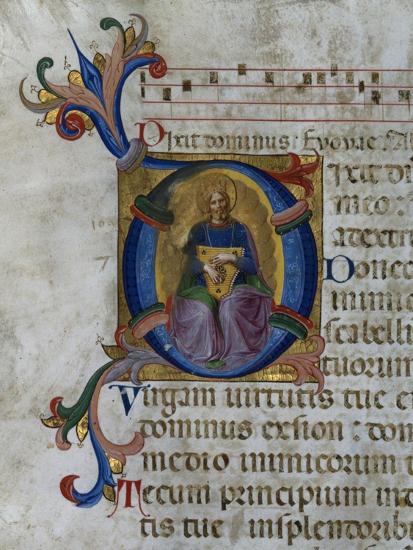 Dixit dominus: Evovae.
ixit di
meo:
adextri
Donec
inimi
scabelli
tuorum
Virgam virtutis tue e
dominus exsion: dom
medio inimicorum
Tecum principium in
tis tue insplendorib